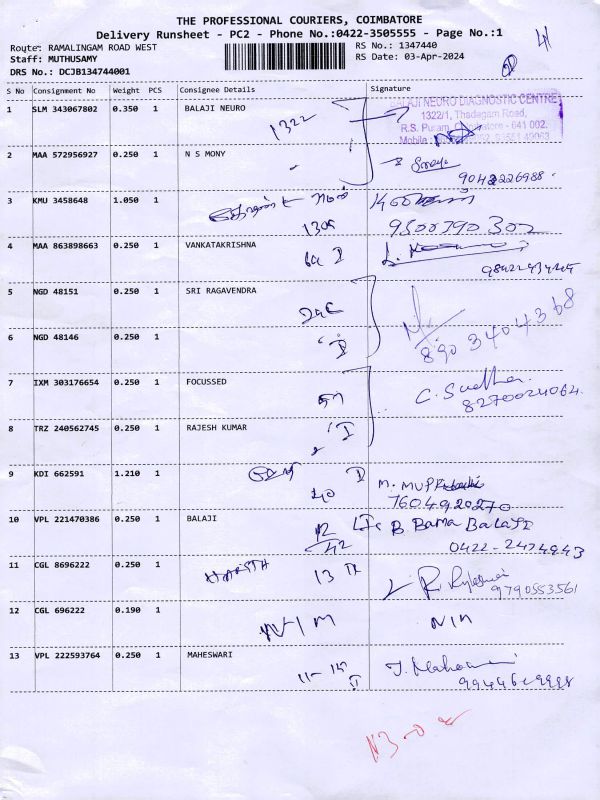 THE PROFESSIONAL COURIERS, COIMBATORE
Delivery Runsheet - PC2 - Phone No.:0422-3505555 - Page No.:1
Route: RAMALINGAM ROAD WEST
RS No.: 1347440
Staff: MUTHUSAMY
RS Date: 03-Apr-2024
DRS No.: DCJB134744001
S No Consignment No Weight PCS Consignee Details Signature
1 SLM 343067802 0.350 1 BALAJI NEURO 1322
BALAJI NEURO DIAGNOSTIC CENTRE
1322/1, Thadagam Road,
R.S. Puram, Coimbatore - 641 002.
Mobile
2 MAA 572956927 0.250 1 N S MONY
9042226988
3 KMU 3458648 1.050 1
9500790302
4 MAA 863898663 0.250 1 VANKATAKRISHNA
5 NGD 48151 0.250 1 SRI RAGAVENDRA
6 NGD 48146 0.250 1
8903404368
7 IXM 303176654 0.250 1 FOCUSSED
C. Sudha
8270024064
8 TRZ 240562745 0.250 1 RAJESH KUMAR
9 KDI 662591 1.210 1
40
7604920270
10 VPL 221470386 0.250 1 BALAJI
12/42
B Bama Balaji
0422-2474943
11 CGL 8696222 0.250 1 HARISH
9790553561
12 CGL 696222 0.190 1
13 VPL 222593764 0.250 1 MAHESWARI